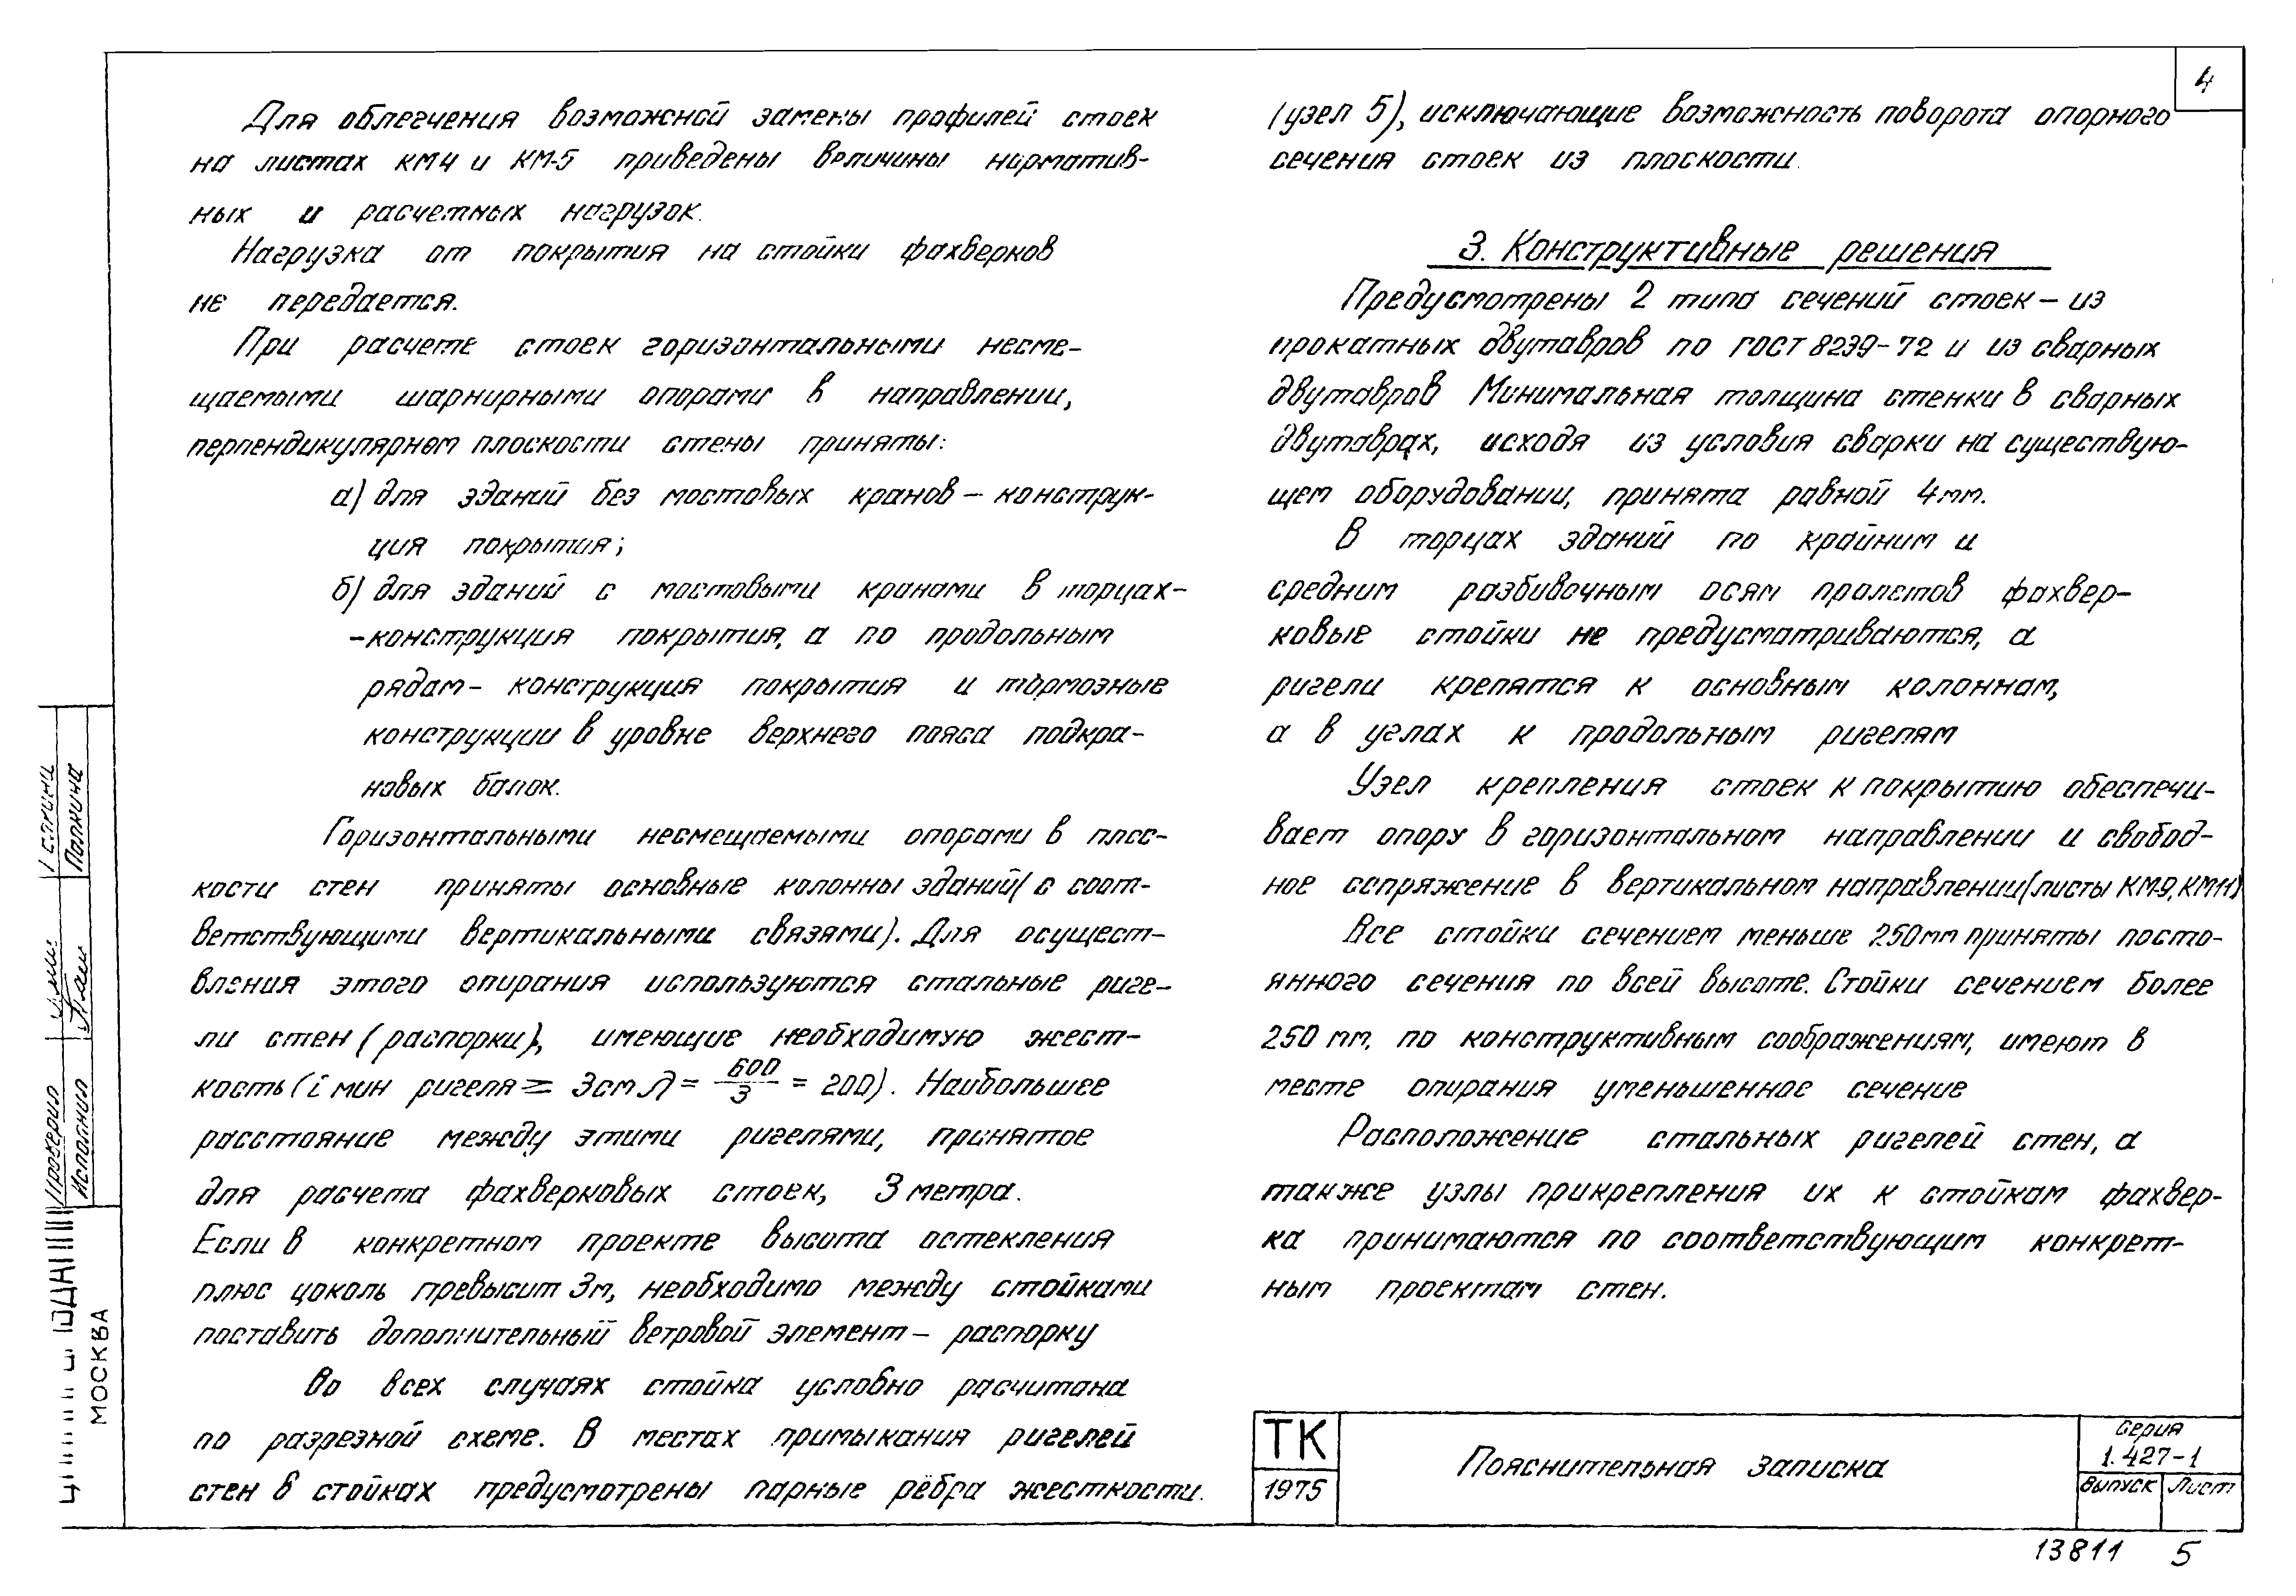 4
Для облегчения возможной замены профилей стоек
на листах КМ4 и КМ-5 приведены величины норматив-
ных и расчетных нагрузок.
Нагрузка от покрытия на стойки фахверков
не передается.
При расчете стоек горизонтальными несме-
щаемыми шарнирными опорами в направлении,
перпендикулярном плоскости стены приняты:
а) для зданий без мостовых кранов – конструк-
ция покрытия;
б) для зданий с мостовыми кранами в торцах-
-конструкция покрытия, а по продольным
рядам – конструкция покрытия и тормозные
конструкции в уровне верхнего пояса подкра-
новых балок.
Горизонтальными несмещаемыми опорами в плос-
кости стен приняты основные колонны зданий (с соот-
ветствующими вертикальными связями). Для осущест-
вления этого опирания используются стальные риге-
ли стен (распорки), имеющие необходимую жест-
кость (i мин ригеля ≥ 3см λ = 600/3 = 200). Наибольшее
расстояние между этими ригелями, принятое
для расчета фахверковых стоек, 3 метра.
Если в конкретном проекте высота остекления
плюс цоколь превысит 3м, необходимо между стойками
поставить дополнительный ветровой элемент – распорку
Во всех случаях стойка условно расчитана
по разрезной схеме. В местах примыкания ригелей
стен в стойках предусмотрены парные рёбра жесткости.
(узел 5), исключающие возможность поворота опорного
сечения стоек из плоскости.
3. Конструктивные решения
Предусмотрены 2 типа сечений стоек – из
прокатных двутавров по ГОСТ 8239-72 и из сварных
двутавров Минимальная толщина стенки в сварных
двутаврах, исходя из условия сварки на существую-
щем оборудовании, принята равной 4мм.
В торцах зданий по крайним и
средним разбивочным осям пролетов фахвер-
ковые стойки не предусматриваются, а
ригели крепятся к основным колоннам,
а в углах к продольным ригелям
Узел крепления стоек к покрытию обеспечи-
вает опору в горизонтальном направлении и свобод-
ное сопряжение в вертикальном направлении (листы КМ-9, КМ11)
Все стойки сечением меньше 250мм приняты посто-
янного сечения по всей высоте. Стойки сечением более
250 мм, по конструктивным соображениям, имеют в
месте опирания уменьшенное сечение
Расположение стальных ригелей стен, а
также узлы прикрепления их к стойкам фахвер-
ка принимаются по соответствующим конкрет-
ным проектам стен.
Проверил
Исполнил
МОСКВА
ТК
1975
Пояснительная записка
Серия
1.427-1
Выпуск Лист
13811 5